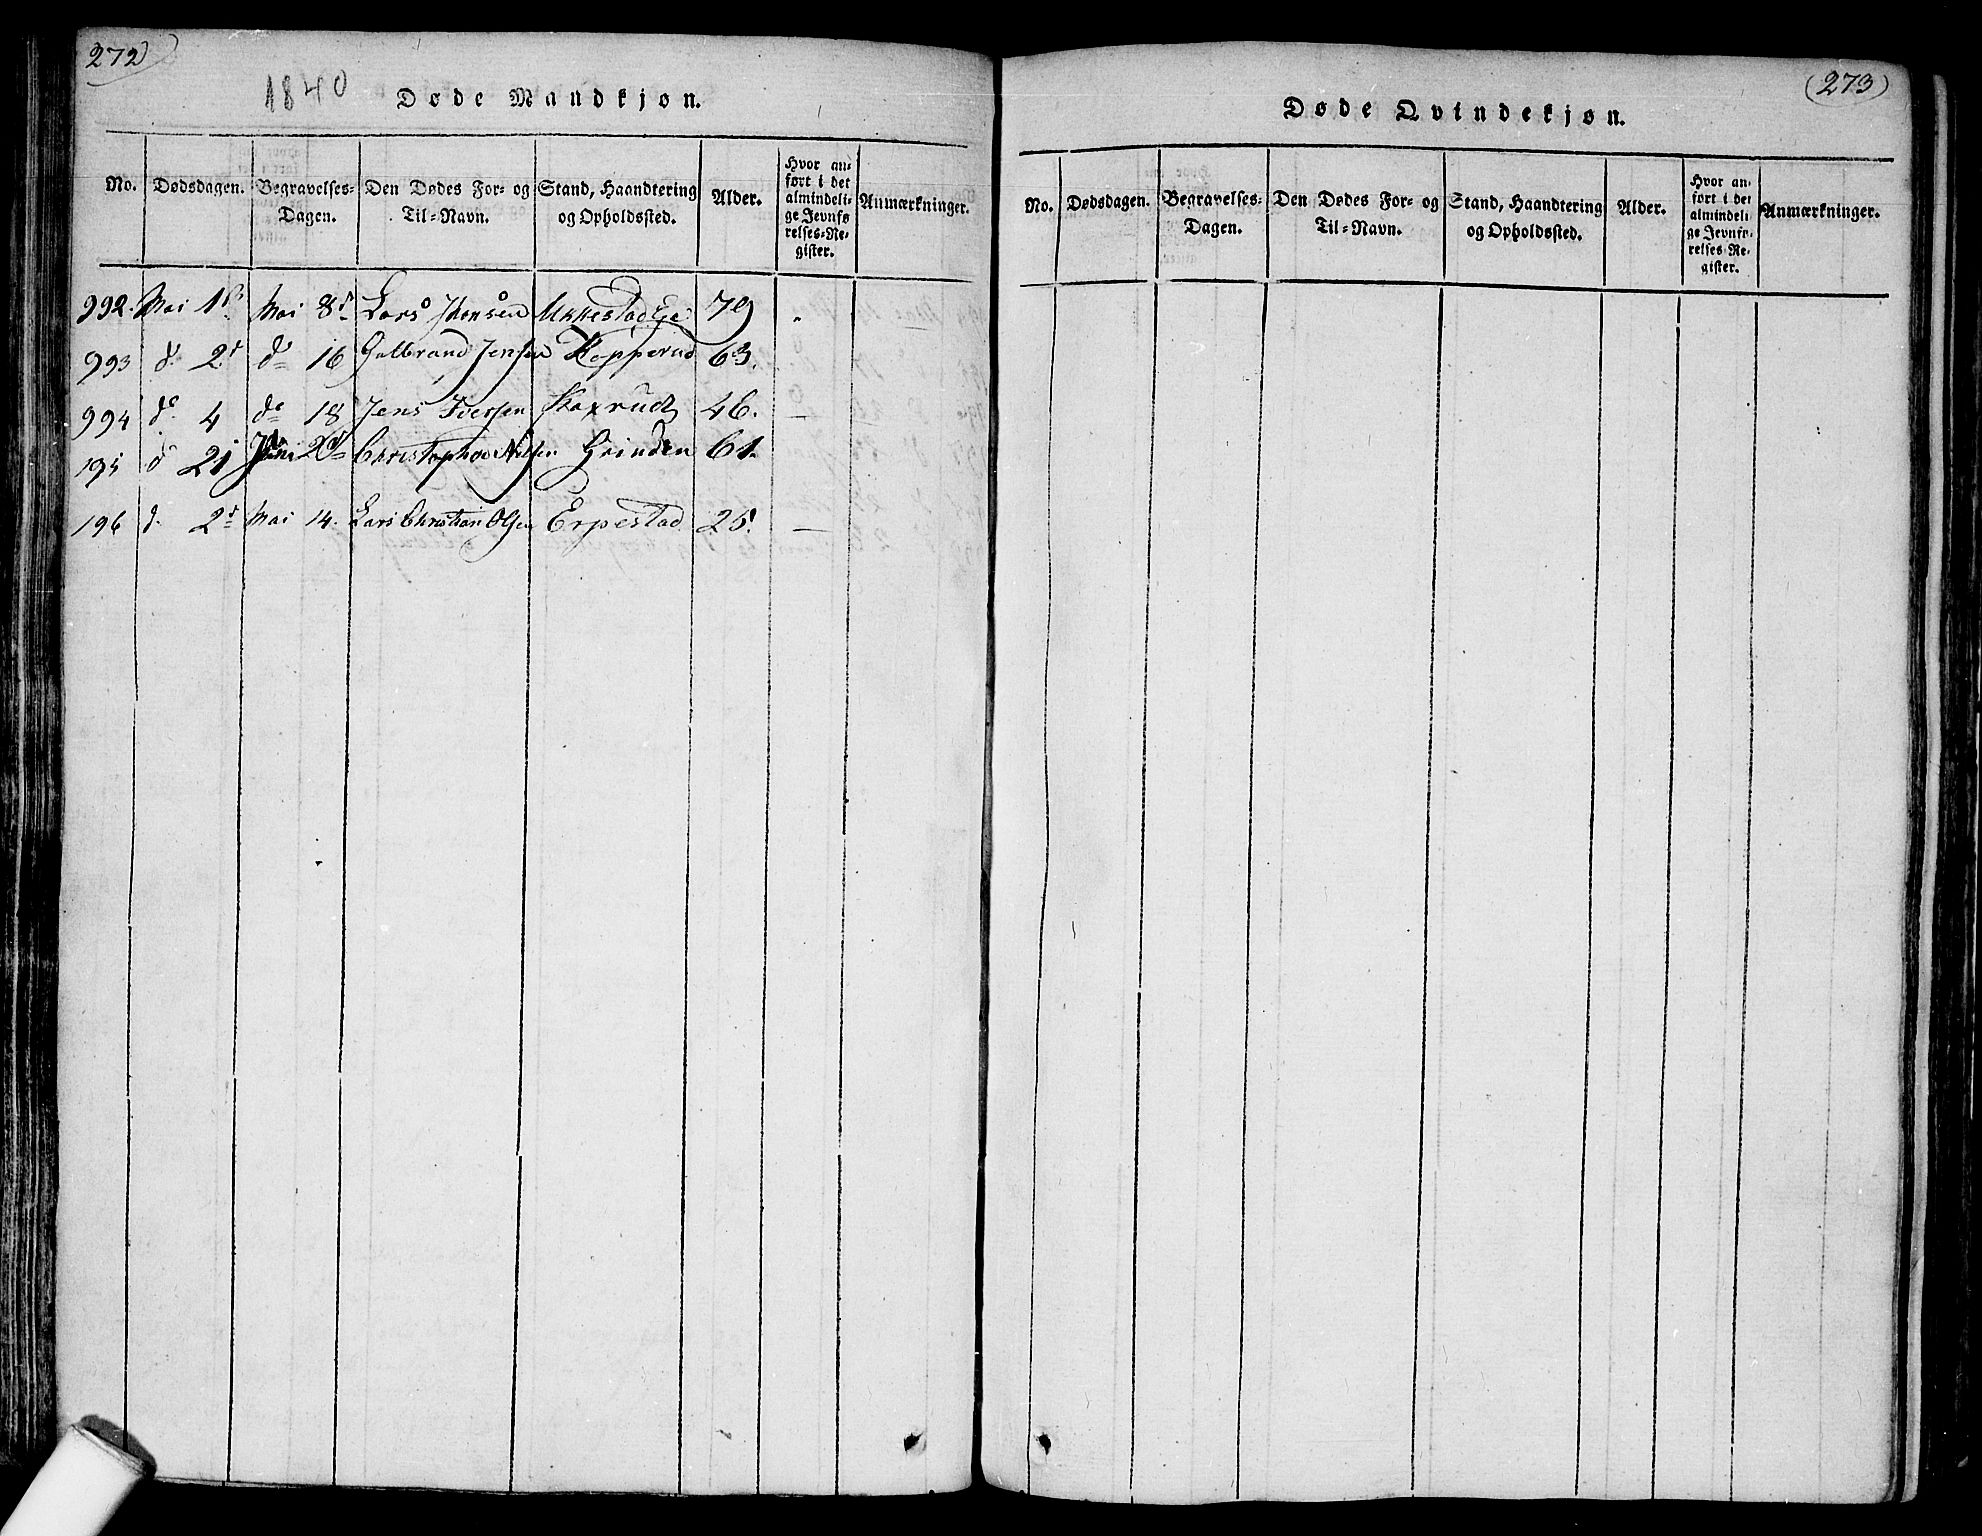 272)
1840 Døde Mandkjøn.
No. Dødsdagen. Begravelses-Dagen. Den Dødes For- og Til-Navn. Stand, Haandtering og Opholdssted. Alder. Hvor anført i det almindelige Jevnførelses-Register. Anmærkninger.
992. Mai 1 Mai 8d Lars Ukkestad Eje 79
993 d. 2d do 16 Gulbrand Jensen Kopperud 63.
994 do. 4 do 18 Jens Iversen Skaxrud 46. —
195 d 21 Christopher Nilsen Grinden 61.
196 d. 2d Mai 14. Lars Christian Olsen Erpestad 25. —
(273)
Døde Qvindekjøn.
No. Dødsdagen. Begravelses-Dagen. Den Dødes For- og Til-Navn. Stand, Haandtering og Opholdssted. Alder. Hvor anført i det almindelige Jevnførelses-Register. Anmærkninger.